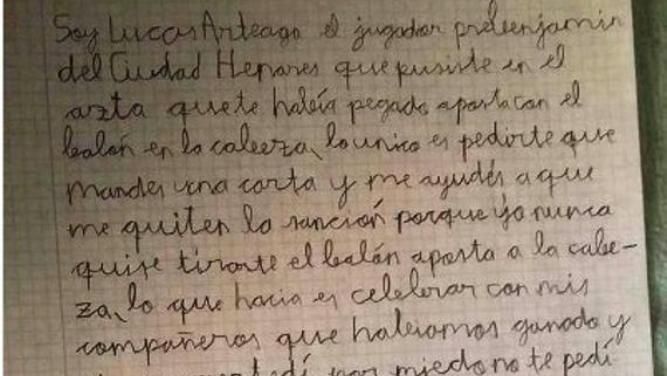 Soy Lucas Arteaga el jugador prebenjamin
del Ciudad Henares que pusiste en el
azta que te había pegado aposta con el
balón en la cabeza, lo unico es pedirte que
mandes una carta y me ayudés a que
me quiten la sanción porque yo nunca
quise tirarte el balón aposta a la cabe-
za, lo que hacia es celebrar con mis
compañeros que habiamos ganado y
dí por miedo no te pedí